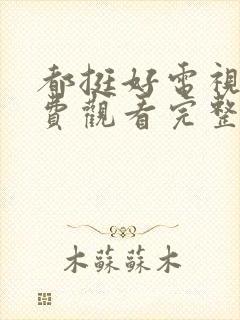 都挺好電視
費觀看完整
木蘇蘇木